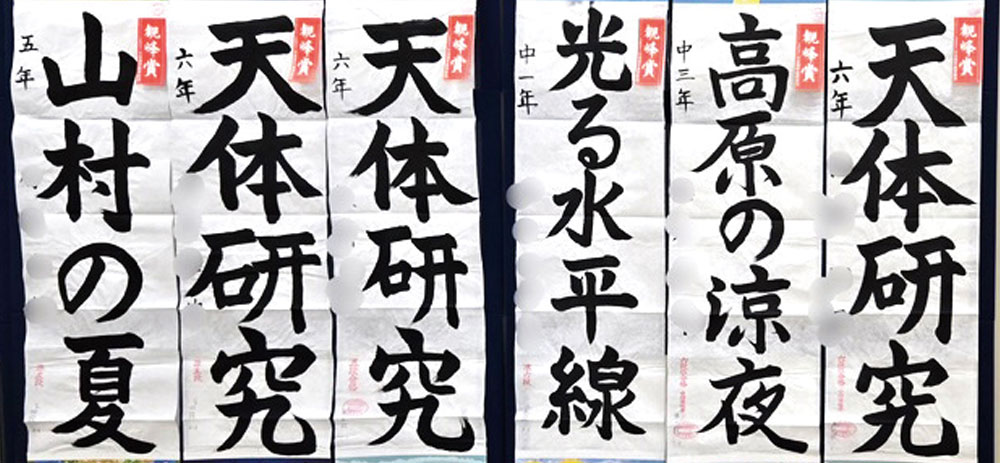 親峰賞
天体研究
六年
親峰賞
高原の涼夜
中三年
親峰賞
光る水平線
中一年
親峰賞
天体研究
六年
親峰賞
天体研究
六年
親峰賞
山村の夏
五年